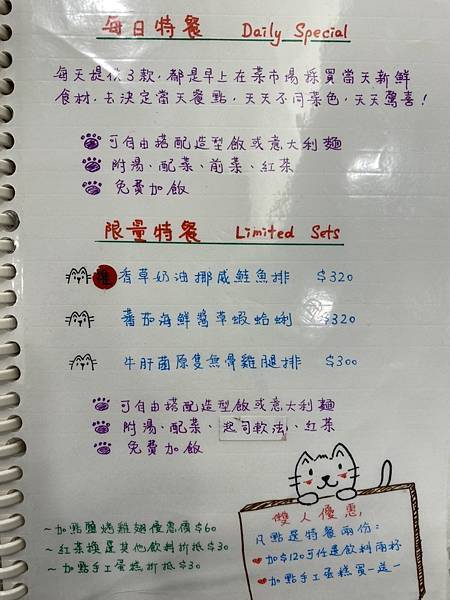 每日特餐 Daily Special
每天提供3款,都是早上在菜市場採買當天新鮮
食材,去決定當天餐點,天天不同菜色,天天驚喜!
可自由搭配造型飯或意大利麵
附湯、配菜、前菜、紅茶
免費加飯
限量特餐 Limited Sets
推 香草奶油挪威鮭魚排 $320
蕃茄海鮮醬草蝦蛤蜊 $320
牛肝菌原隻無骨雞腿排 $300
可自由搭配造型飯或意大利麵
附湯、配菜、起司軟法、紅茶
免費加飯
~加點鹽烤雞翅優惠價$60
~紅茶換選其他飲料折抵$30
~加點手工蛋糕折抵$30
雙人優惠,
凡點選特餐兩份:
加$120可任選飲料兩杯
加點手工蛋糕買一送一